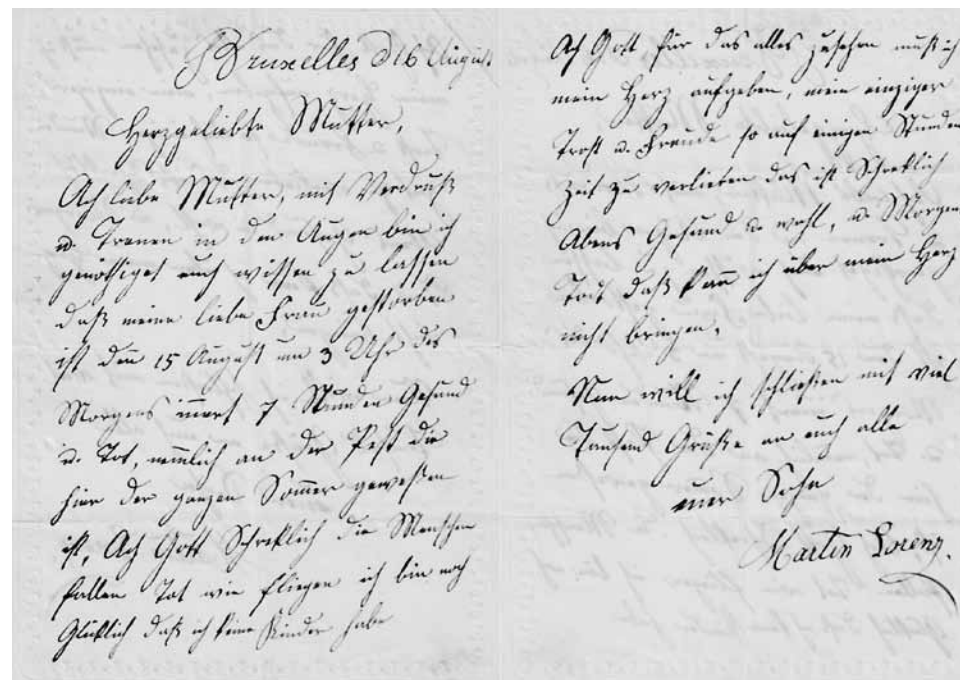 Bruxelles d 16 August
Herzgeliebte Mutter,
Ach liebe Mutter, mit Verdruß
u. Tranen in den Augen bin ich
genöthiget euch wissen zu lassen
daß meine liebe Frau gestorben
ist den 15 August um 3 Uhr des
Morgens inert 7 Stunden Gesund
u. Tot, nemlich an der Pest die
hier der ganzen Sommer geweßen
ist, Ach Gott Schreklich die Menschen
fallen Tot wie fliegen ich bin noch
Glüklich daß ich keine Kinder habe
Ach Gott für das alles zusehen muß ich
mein Herz aufgeben, mein einziger
Trost u. Freude so auf einigen Stunden
Zeit zu verlieren das ist Schreklich
Abens Gesund u. wohl, u. Morgens
Tod daß kann ich über mein Herz
nicht bringen.
Nun will ich schließen mit viel
Tausend Grüße an euch alle
euer Sohn
Martin Lorenz.